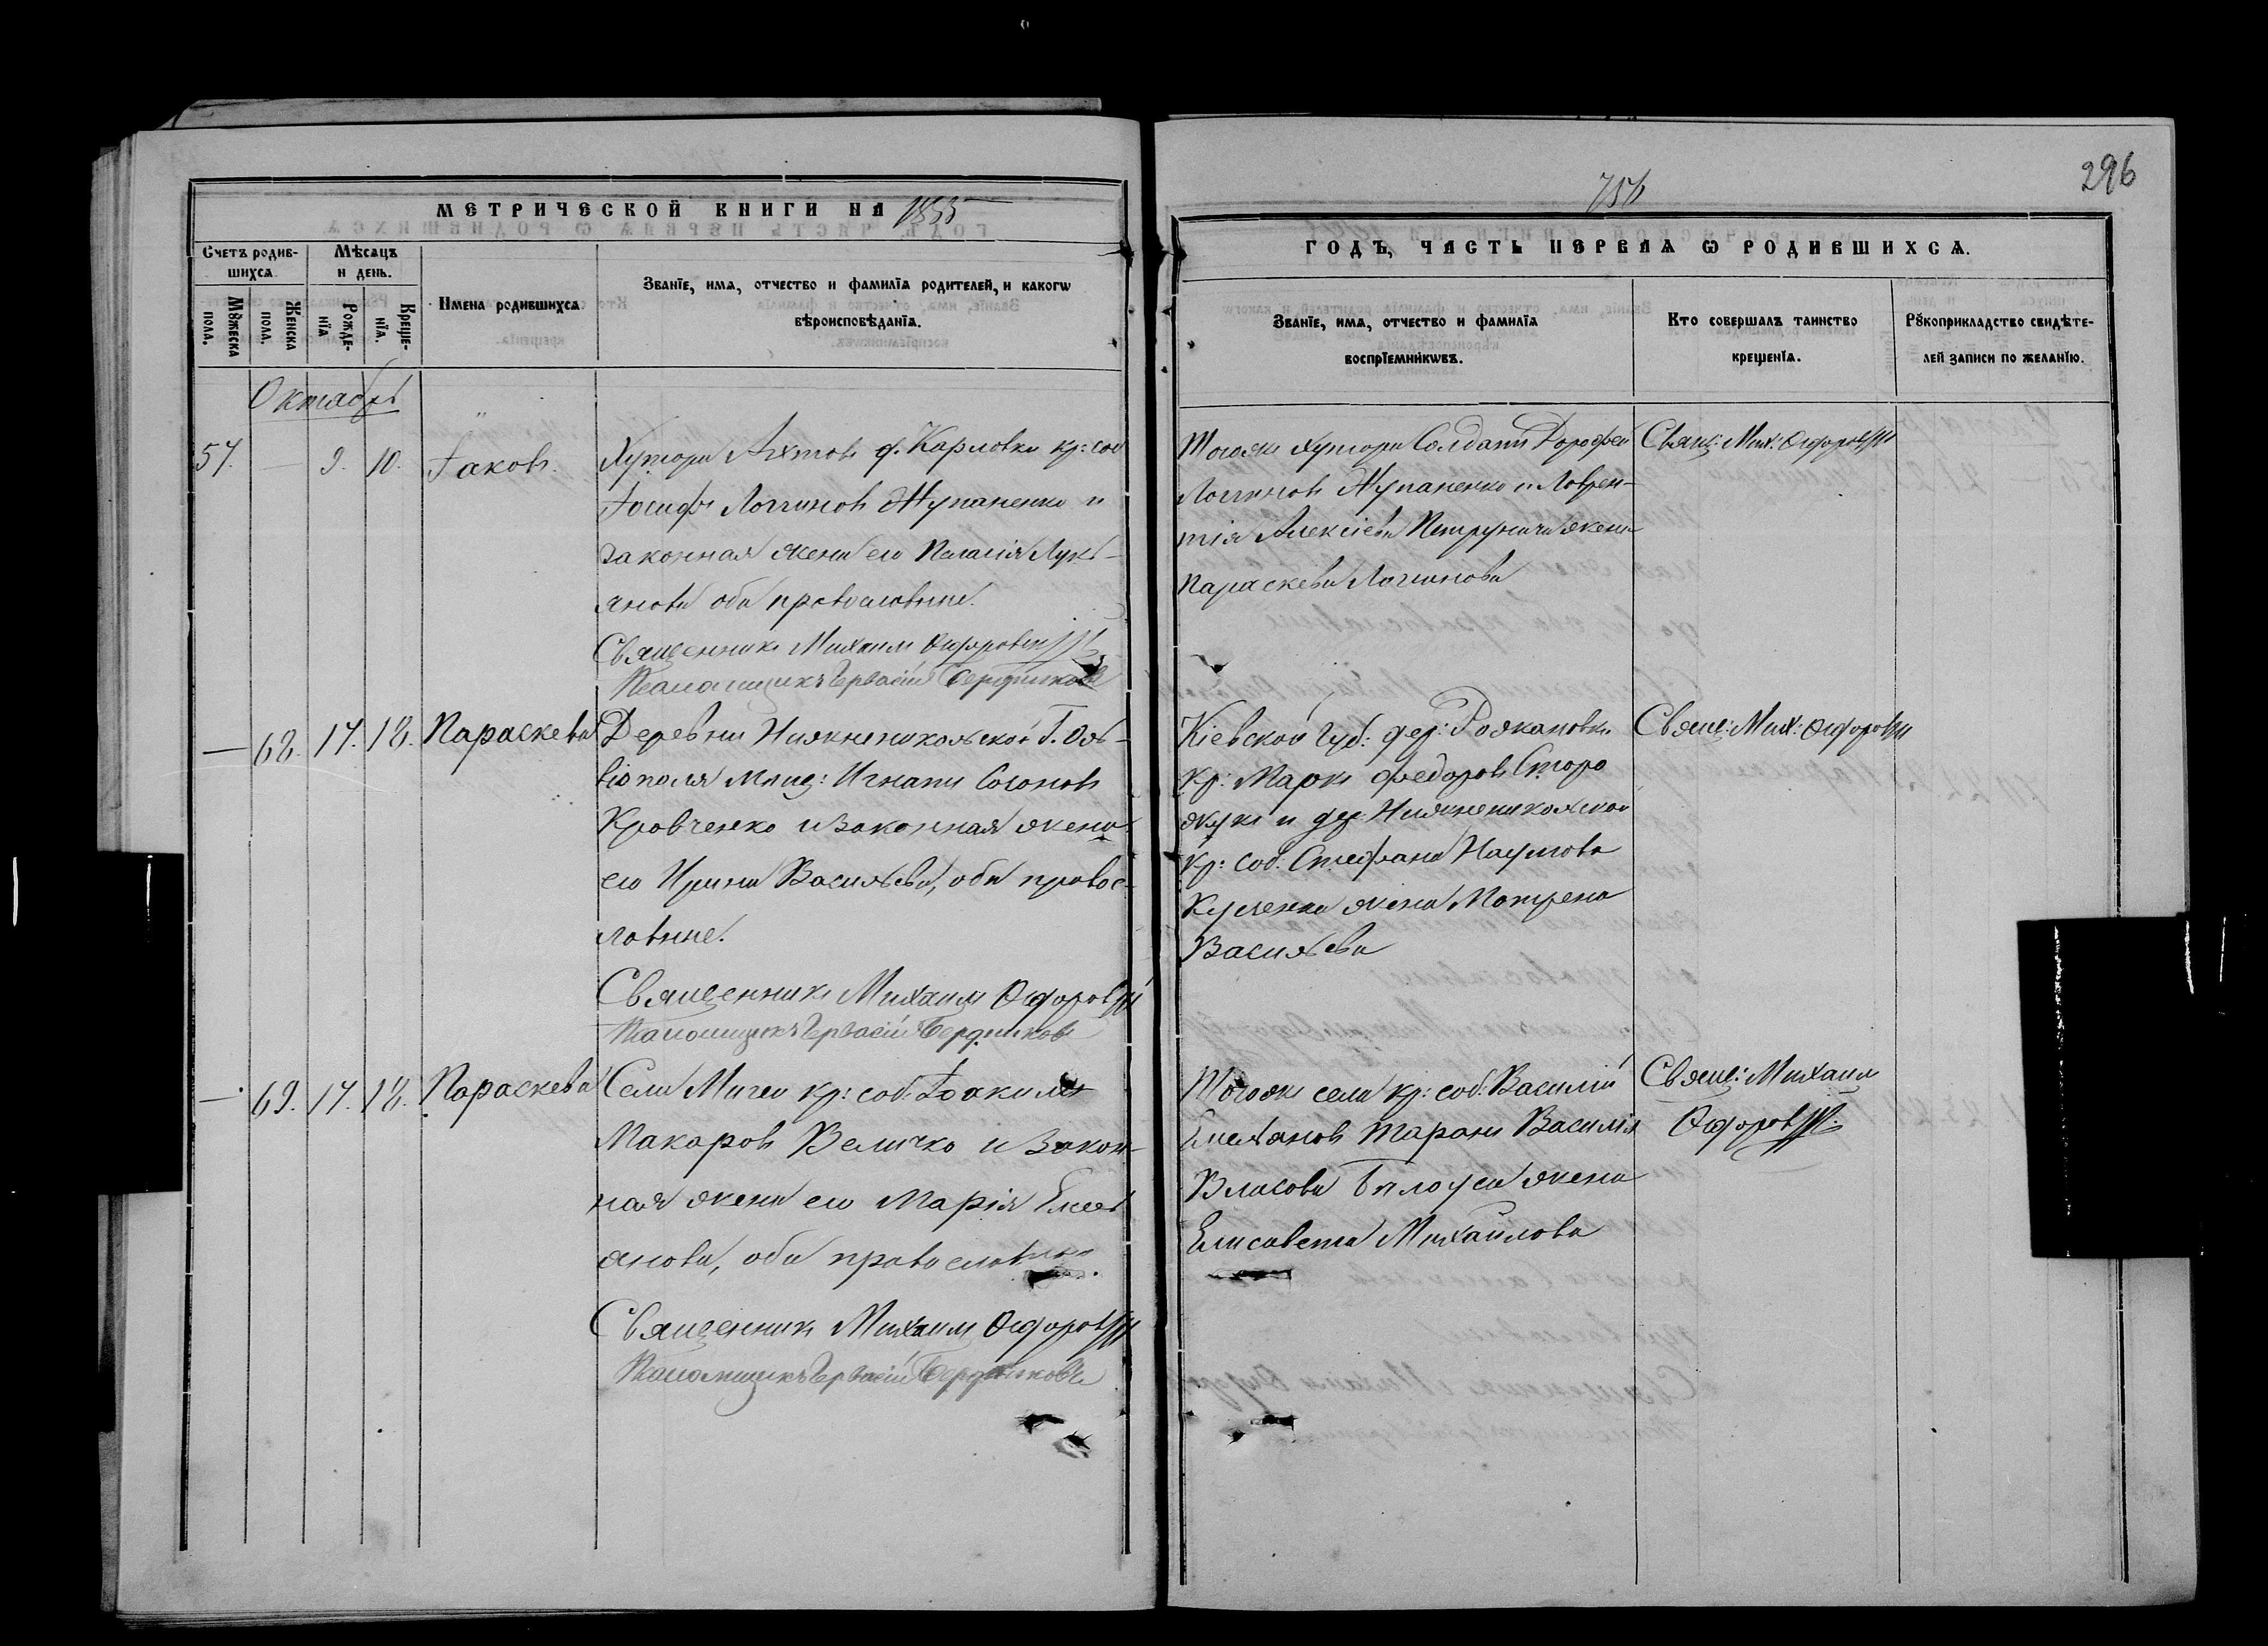 296
756
МЕТРИЧЕСКОЙ КНИГИ НА 1885
ГОДЪ, ЧАСТЬ ПЕРВАЯ Ѡ РОДИВШИХСѦ.
Счетъ родив-
шихсѧ.
Мѣсѧцъ
и день.
Мꙋжеска
пола.
Женска
пола.
Рожде-
нїѧ.
Креще-
нїѧ.
Имена родившихсѧ.
Званїе, имѧ, отчество и фамилїѧ родителей, и какогѡ
вѣроисповѣданїѧ.
Званїе, имѧ, отчество и фамилїѧ
воспрїемникѡвъ.
Кто совершалъ таинство
крещенїѧ.
Рꙋкоприкладство свидѣте-
лей записи по желанїю.
Октябрь
57. — 9. 10. Іаковъ.
Хутора д. Карловки кр: соб
Іосифъ Логгиновъ Жупаненко и
законная жена его Пелагія Лукь-
янова оба православные.
Священникъ Михаилъ
Псаломщикъ Гервасій Бердниковъ
Тогоже хутора Солдатъ Дорофей
Логгиновъ Жупаненко и Лаврен-
тія Алексіева жена
Параскева Логинова
Свящ: Мих:
— 68. 17. 18. Параскева
Деревни Нижненикольской Г. Оль-
віополя мѣщ: Игнатій Созоновъ
Кравченко и законная жена
его Ирина Васильева, оба правос-
лавные.
Священникъ Михаилъ
Псаломщикъ Гервасій Бердниковъ
Кіевской Губ: дер:
кр: Маркъ Федоровъ Сторо
жукъ и дер: Нижненикольской
кр: соб: Стефана Наумова
жена Матрена
Васильева
Свящ: Мих:
— 69. 17. 18. Параскева
Села Мигеи кр: соб: Іоакимъ
Макаровъ Величко и закон-
ная жена его Марія Емель
янова, оба православные.
Священникъ Михаилъ
Псаломщикъ Гервасій Бердниковъ
Тогоже села кр: соб: Василій
Емельяновъ Таранъ Василія
Власова Бѣлоуса жена
Елисавета Михайлова
Свящ: Михаилъ